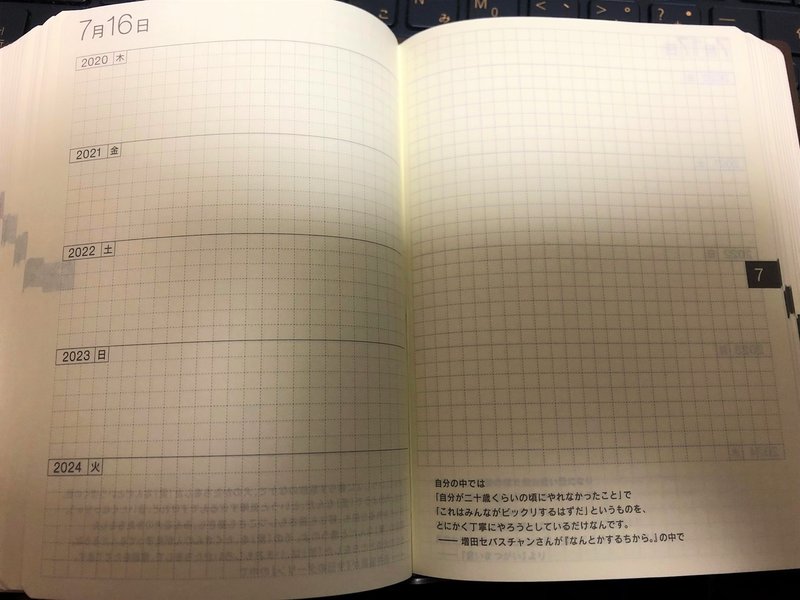 7月16日
2020 木
2021 金
2022 土
2023 日
2024 火
7
自分の中では
「自分が二十歳くらいの頃にやれなかったこと」で
「これはみんながビックリするはずだ」というものを、
とにかく丁寧にやろうとしているだけなんです。
—— 増田セバスチャンさんが『なんとかするちから。』の中で